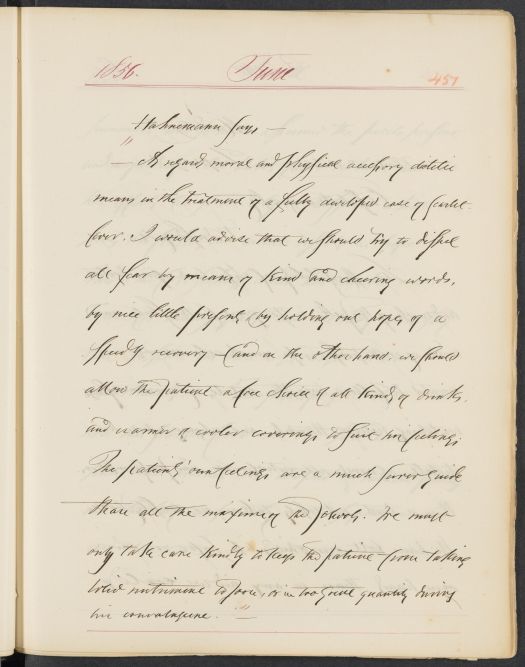 1856. June 457
Hahnemann says —
" — As regards moral and physical accessory dietetic
means in the treatment of a fully developed case of scarlet-
fever, I would advise that we should try to dispel
all fear by means of kind and cheering words,
by nice little presents, by holding out hopes of a
speedy recovery — (and on the other hand, we should
allow the patient a free choice of all kinds of drinks,
and warmer or cooler coverings to suit his feelings
The patients' own feelings are a much surer guide
than all the maxims of the schools. We must
only take care kindly to keep the patient from taking
solid nutriment too soon, or in too great quantity during
his convalescence. " —